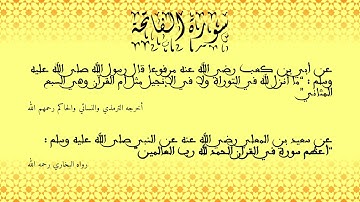 سورة الفاتحة
عن أبي بن كعب رضي الله عنه مرفوعا قال رسول الله صلى الله عليه
وسلم : "ما أنزل الله في التوراة ولا في الإنجيل مثل أم القرآن وهي السبع
المثاني"
أخرجه الترمذي والنسائي والحاكم رحمهم الله
عن سعيد بن المعلى رضي الله عنه عن النبي صلى الله عليه وسلم :
"أعظم سورة في القرآن الحمد لله رب العالمين"
رواه البخاري رحمه الله